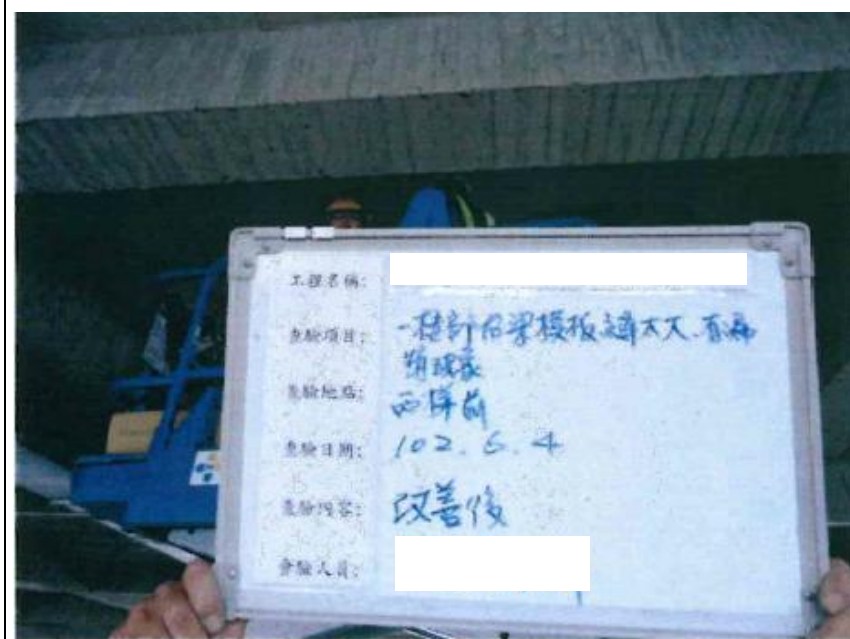 工程名稱:
查驗項目: 一樓部份梁模板縫太大.有漏
現象
查驗地點: 西岸前
查驗日期: 102.6.4
查驗內容: 改善後
會驗人員: